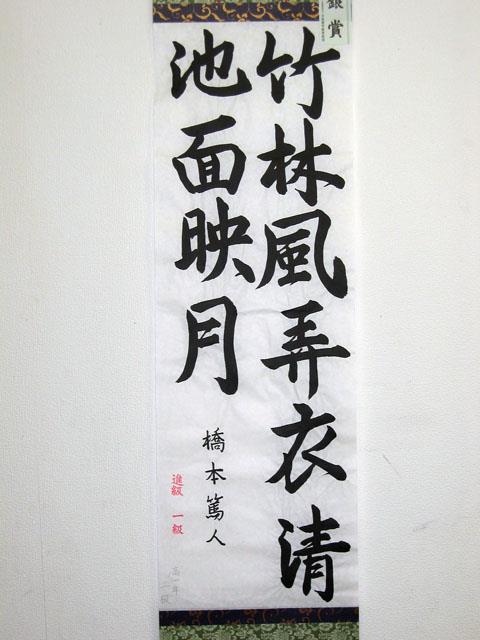 銀賞
竹林風弄衣清
池面映月
橋本篤人
進級 一級
高一年